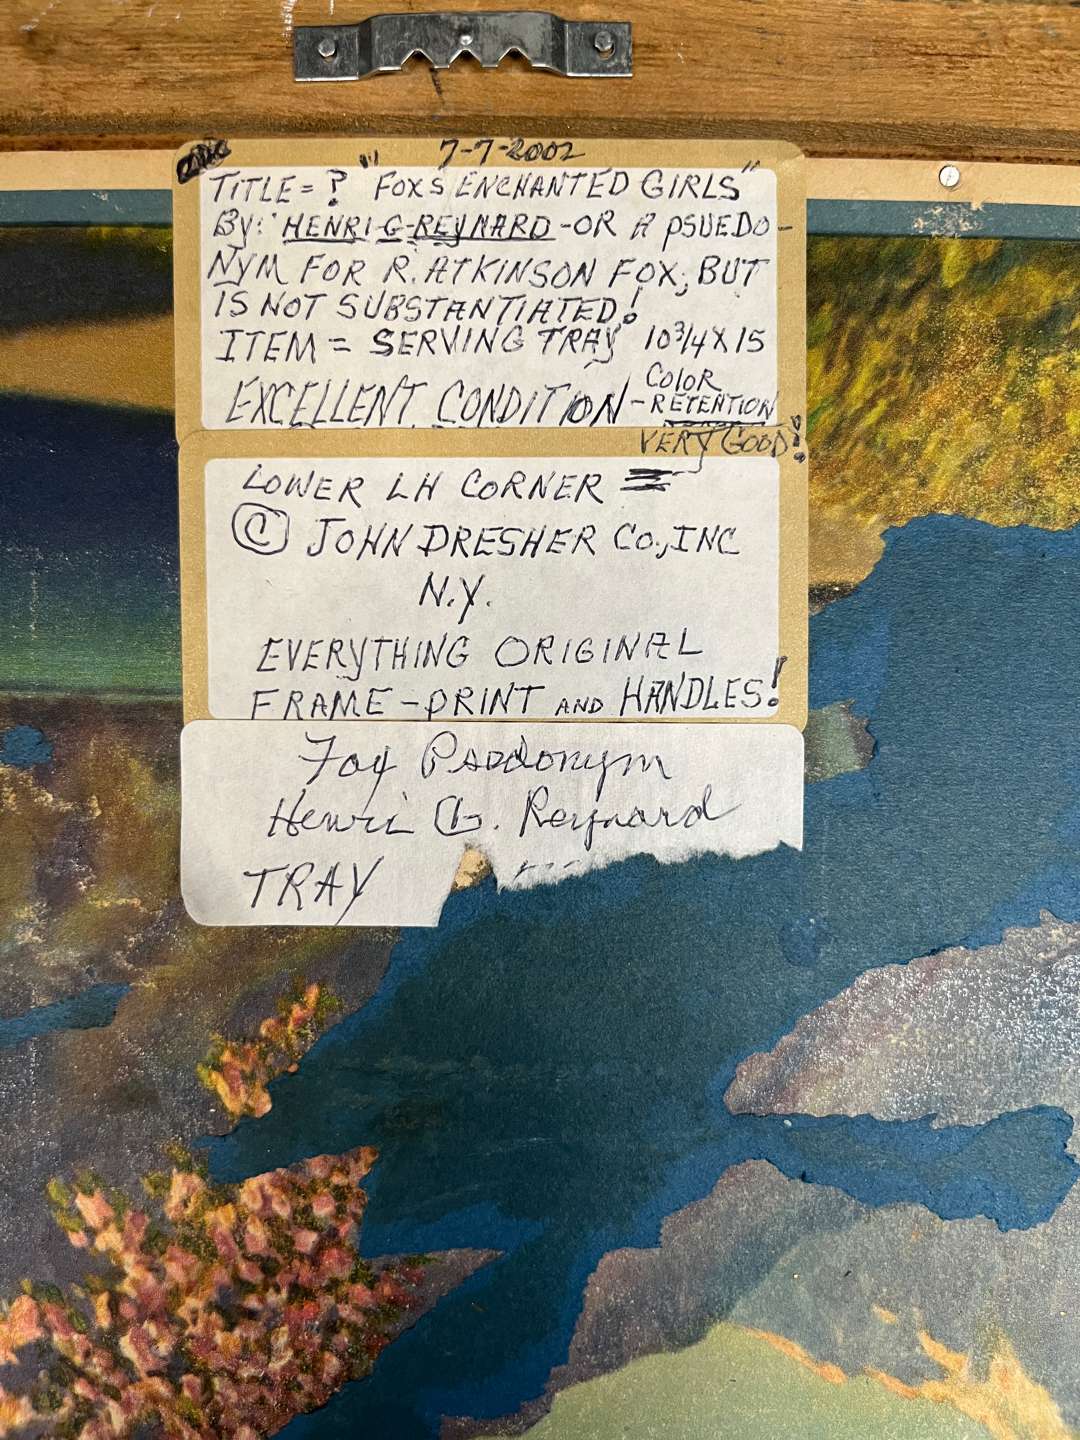 7-7-2002
TITLE = ? "FOXS ENCHANTED GIRLS"
BY: HENRI-G-REYNARD-OR A PSUEDO-
NYM FOR R. ATKINSON FOX; BUT
IS NOT SUBSTANTIATED!
ITEM = SERVING TRAY 10 3/4 X 15
EXCELLENT CONDITION - COLOR
- RETENTION
VERY GOOD!
LOWER LH CORNER =
© JOHN DRESHER CO., INC
N.Y.
EVERYTHING ORIGINAL
FRAME - PRINT AND HANDLES!
Fox Psodonym
Henri G. Reynard
TRAY